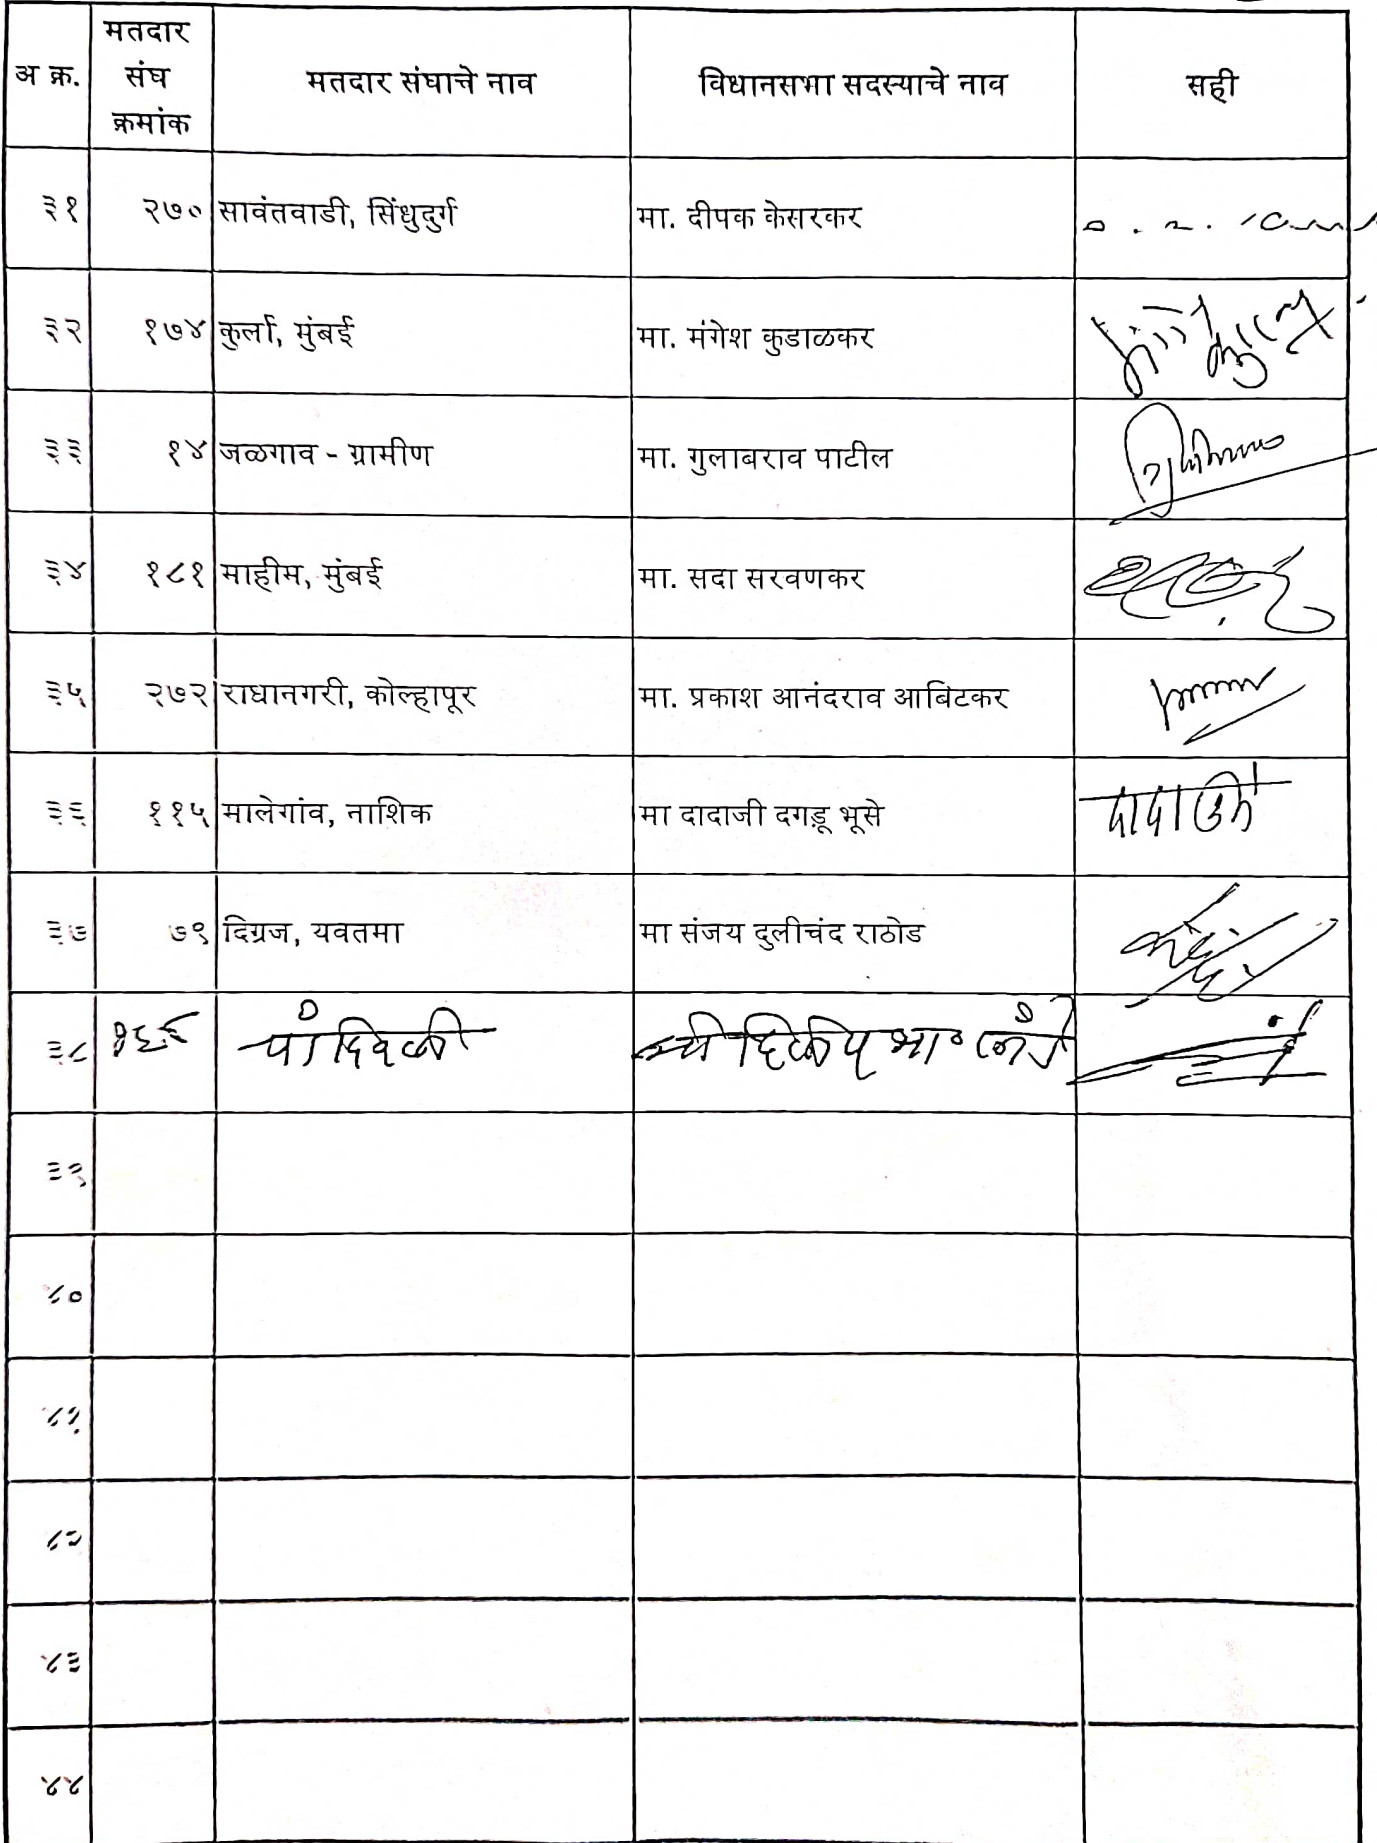 अ क्र. मतदार संघ क्रमांक मतदार संघाचे नाव विधानसभा सदस्याचे नाव सही
३१ २७० सावंतवाडी, सिंधुदुर्ग मा. दीपक केसरकर
३२ १७४ कुर्ला, मुंबई मा. मंगेश कुडाळकर
३३ १४ जळगाव - ग्रामीण मा. गुलाबराव पाटील
३४ १८१ माहीम, मुंबई मा. सदा सरवणकर
३५ २७२ राधानगरी, कोल्हापूर मा. प्रकाश आनंदराव आबिटकर
३६ ११५ मालेगांव, नाशिक मा दादाजी दगडू भूसे
३७ ७९ दिग्रज, यवतमा मा संजय दुलीचंद राठोड
३८ चांदिवली श्री दिलीप भा॰ लांडे
३९
४०
४१
४२
४३
४४